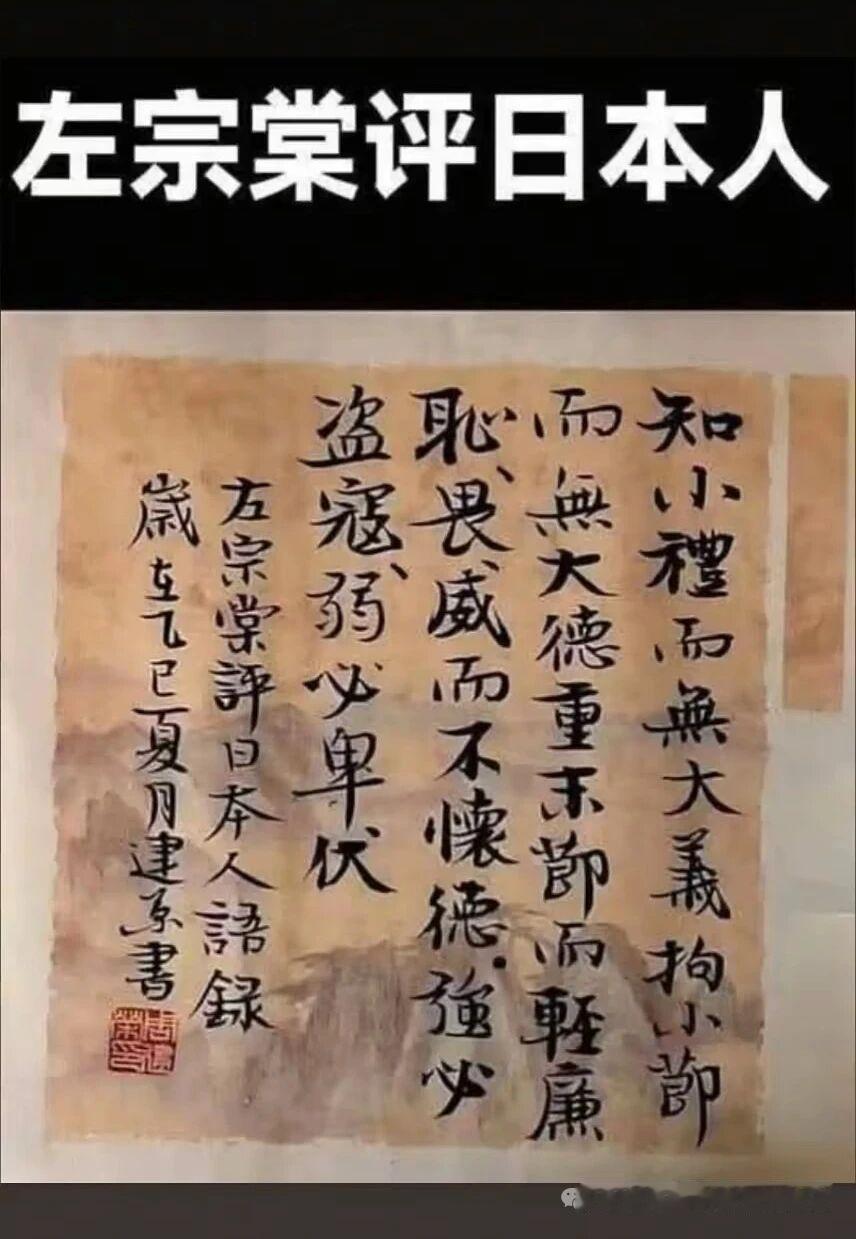 左宗棠评日本人
知小禮而無大義拘小節
而無大德重末節而輕廉
恥、畏威而不懷德.強必
盗寇、弱必卑伏
左宗棠評日本人語錄
嵗在乙巳夏月建原書